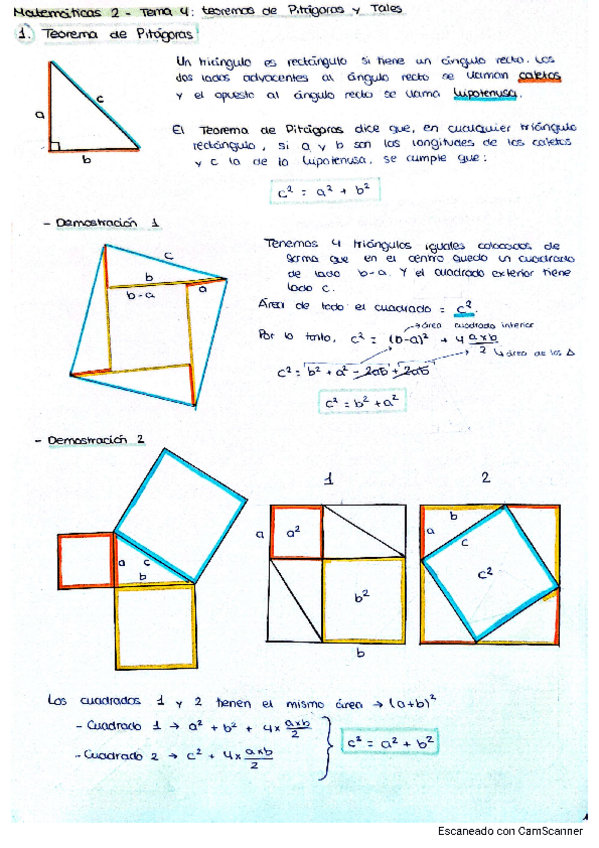 Matemáticas 2 - Tema 4: teoremas de Pitágoras y Tales
1. Teorema de Pitágoras
Un triángulo es rectángulo si tiene un ángulo recto. Los
dos lados adyacentes al ángulo recto se llaman catetos
y el opuesto al ángulo recto se llama hipotenusa.
a
c
b
El Teorema de Pitágoras dice que, en cualquier triángulo
rectángulo, si a y b son las longitudes de los catetos
y c la de la hipotenusa, se cumple que:
c² = a² + b²
- Demostración 1
c
b
b-a
a
Tenemos 4 triángulos iguales colocados de
forma que en el centro quedo un cuadrado
de lado b-a. Y el cuadrado exterior tiene
lado c.
Área de todo el cuadrado = c².
→área cuadrado interior
Por lo tanto, c² = (b-a)² + 4 axb/2
↳ área de los Δ
c² = b² + a² - 2ab + 2ab
c² = b² + a²
- Demostración 2
a
c
b
1
a
a²
b²
b
2
b
a
c
c²
Los cuadrados 1 y 2 tienen el mismo área → (a+b)²
- Cuadrado 1 → a² + b² + 4x axb/2
- Cuadrado 2 → c² + 4x axb/2
c² = a² + b²
Escaneado con CamScanner